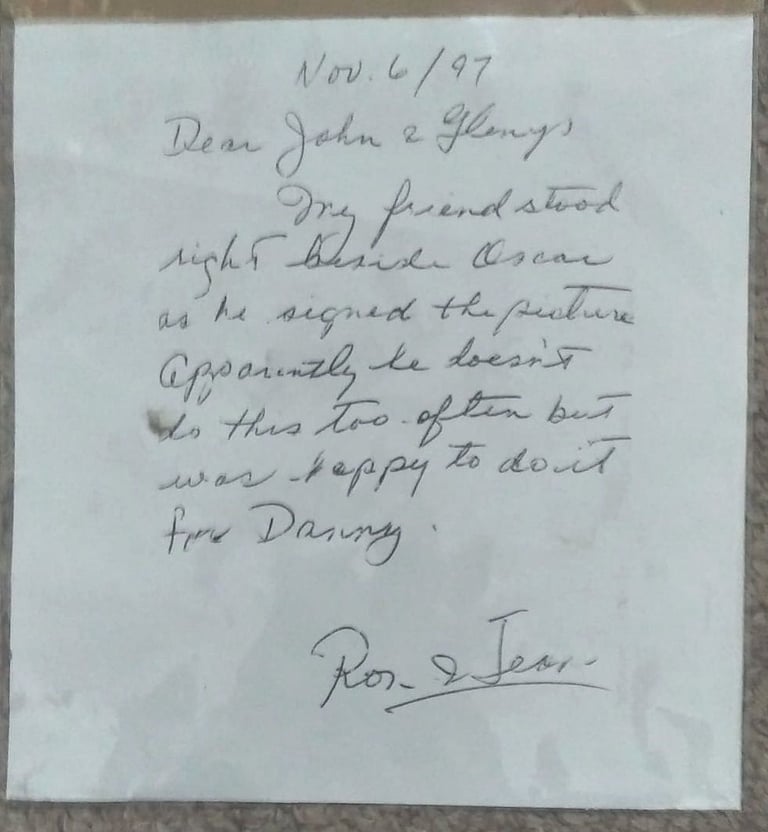 Nov. 6/97
Dear John & Glenys
My friend stood
right beside Oscar
as he signed the picture
Apparently he doesn't
do this too often but
was happy to do it
for Danny.
Ron & Jean